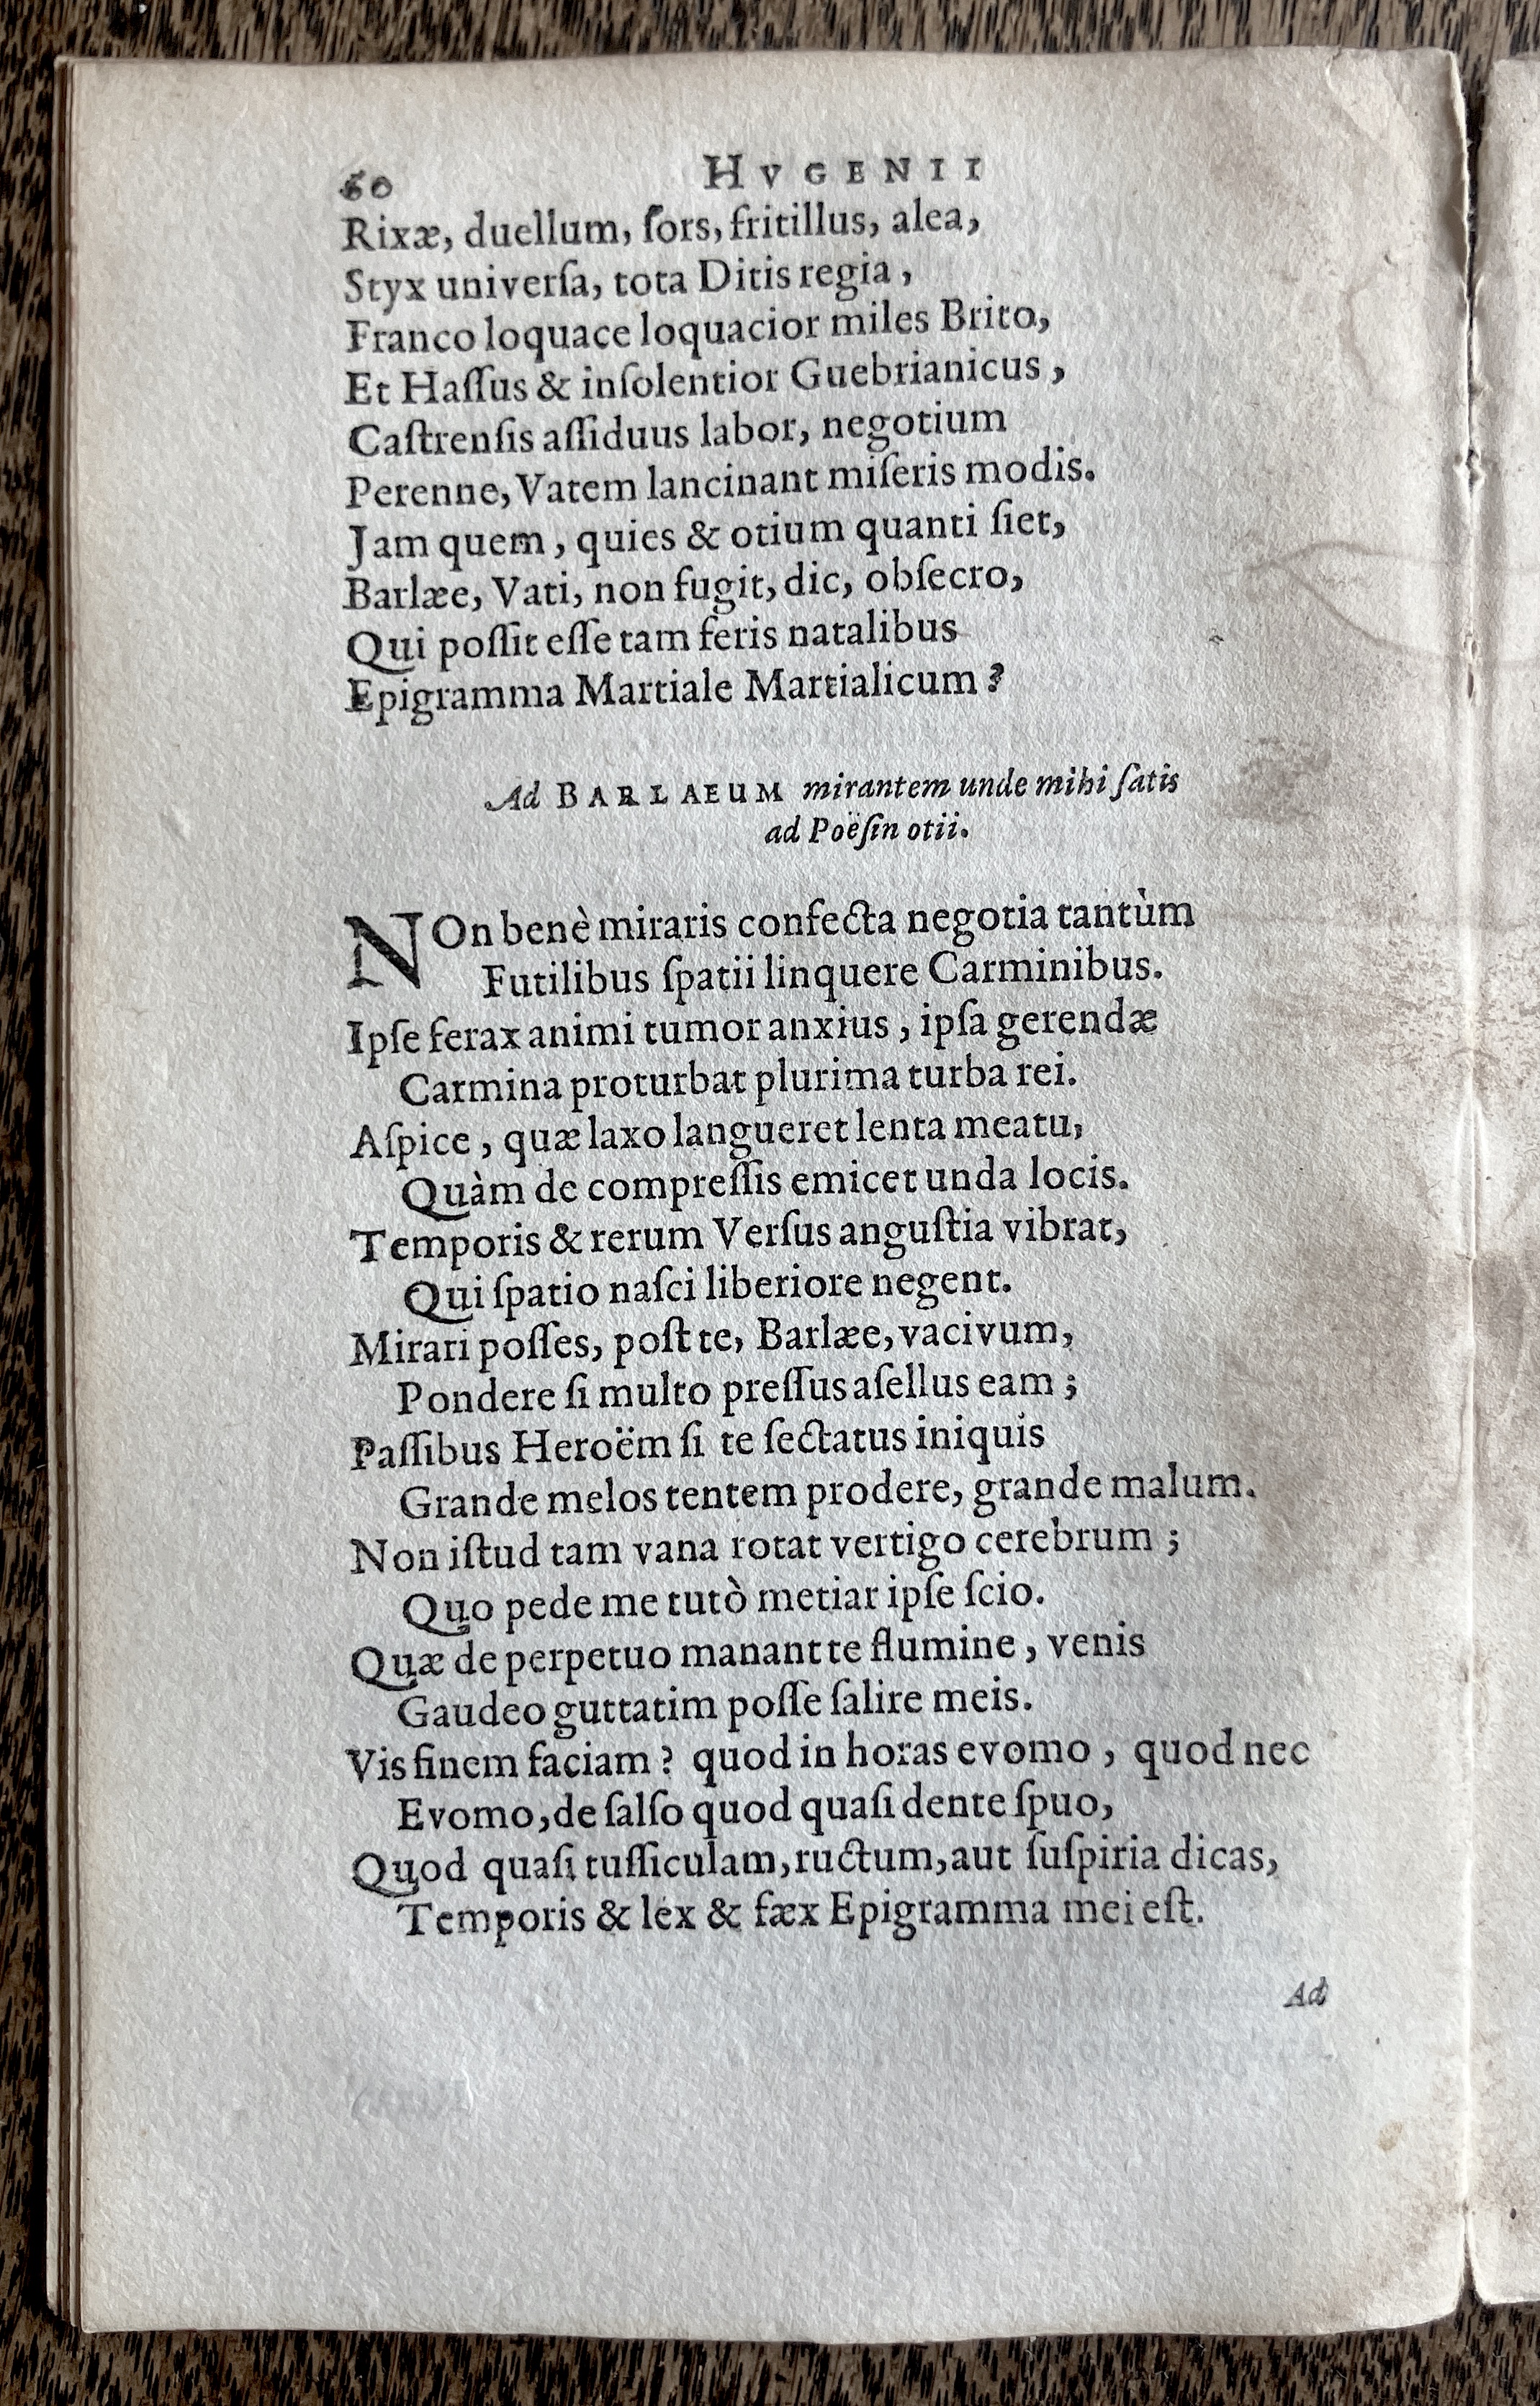 60 HVGENII
Rixæ, duellum, ſors, fritillus, alea,
Styx univerſa, tota Ditis regia,
Franco loquace loquacior miles Brito,
Et Haſſus & inſolentior Guebrianicus,
Caſtrenſis aſſiduus labor, negotium
Perenne, Vatem lancinant miſeris modis.
Jam quem, quies & otium quanti ſiet,
Barlæe, Vati, non fugit, dic, obſecro,
Qui poſſit eſſe tam feris natalibus
Epigramma Martiale Martialicum?
Ad BARLAEUM mirantem unde mihi ſatis
ad Poëſin otii.
NOn benè miraris confecta negotia tantùm
Futilibus ſpatii linquere Carminibus.
Ipſe ferax animi tumor anxius, ipſa gerendæ
Carmina proturbat plurima turba rei.
Aſpice, quæ laxo langueret lenta meatu,
Quàm de compreſſis emicet unda locis.
Temporis & rerum Verſus anguſtia vibrat,
Qui ſpatio naſci liberiore negent.
Mirari poſſes, poſt te, Barlæe, vacivum,
Pondere ſi multo preſſus aſellus eam;
Paſſibus Heroëm ſi te ſectatus iniquis
Grande melos tentem prodere, grande malum.
Non iſtud tam vana rotat vertigo cerebrum;
Quo pede me tutò metiar ipſe ſcio.
Quæ de perpetuo manant te flumine, venis
Gaudeo guttatim poſſe ſalire meis.
Vis finem faciam? quod in horas evomo, quod nec
Evomo, de ſalſo quod quaſi dente ſpuo,
Quod quaſi tuſſiculam, ructum, aut ſuſpiria dicas,
Temporis & lex & fæx Epigramma mei eſt.
Ad